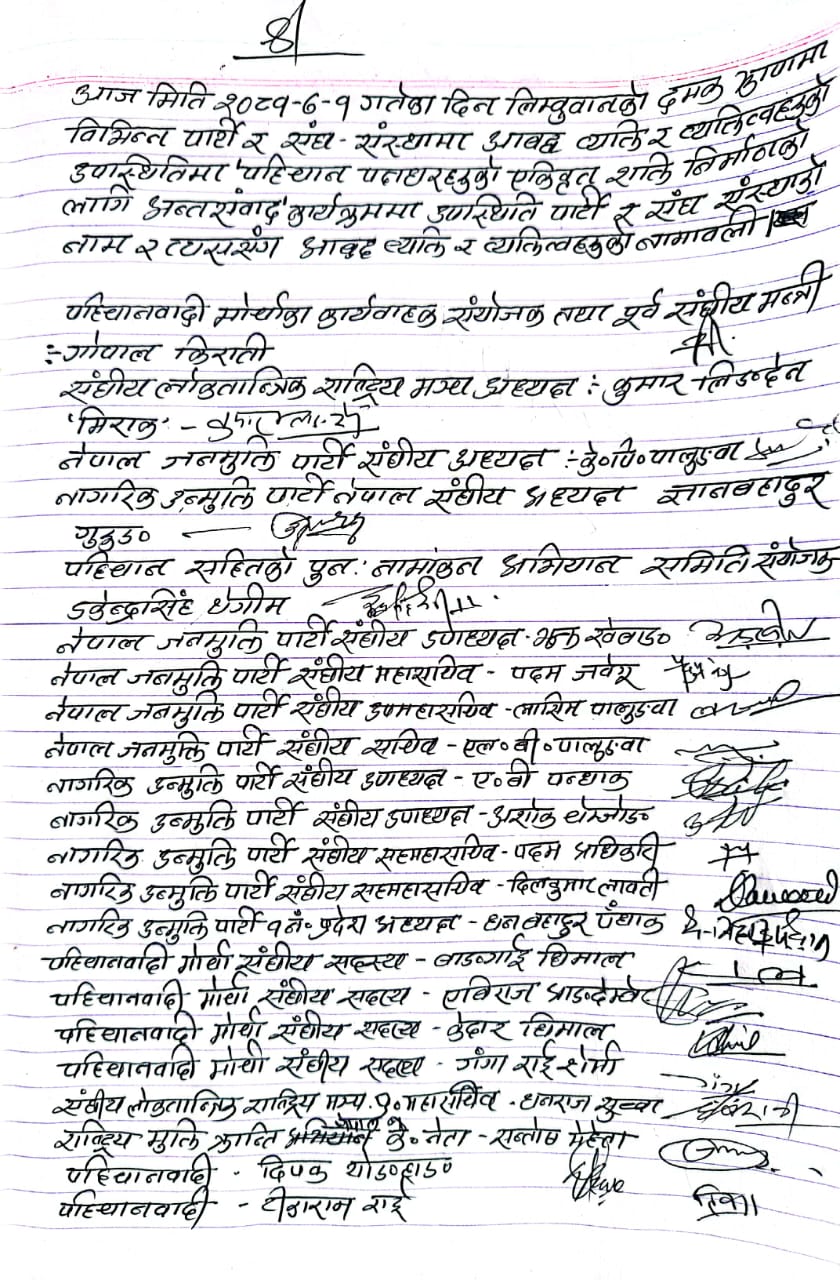 ४
आज मिति २०८१-६-१ गतेका दिन लिम्वुवानको दमक झापामा
विभिन्न पार्टी र संघ-संस्थामा आवद्ध व्यक्ति र व्यक्तित्वहरुको
उपस्थितिमा 'पहिचान पक्षधरहरुको एकिकृत शक्ति निर्माणको
लागि अन्तर्संवाद' कार्यक्रममा उपस्थिति पार्टी र संघ संस्थाको
नाम र त्यससंग आवद्ध व्यक्ति र व्यक्तित्वहरुको नामावली
पहिचानवादी मोर्चाका कार्यवाहक संयोजक तथा पूर्व संघीय मन्त्री
:- गोपाल किराती
संघीय लोकतान्त्रिक राष्ट्रिय मञ्च अध्यक्ष :- कुमार लिङदेन
'मिराक' -
नेपाल जनमुक्ति पार्टी संघीय अध्यक्ष :- के॰पि॰पालुङवा
नागरिक उन्मुक्ति पार्टी नेपाल संघीय अध्यक्ष ज्ञानबहादुर
गुरुङ॰
पहिचान सहितको पुन: नामांकन अभियान समिति संयोजक
डकेन्द्रसिंह थेगीम
नेपाल जनमुक्ति पार्टी संघीय उपाध्यक्ष - भक्त खेवाङ॰
नेपाल जनमुक्ति पार्टी संघीय महासचिव - पदम जवेगू
नेपाल जनमुक्ति पार्टी संघीय उपमहासचिव - लासिम पालुङवा
नेपाल जनमुक्ति पार्टी संघीय सचिव - एल॰बी॰पालुङवा
नागरिक उन्मुक्ति पार्टी संघीय उपाध्यक्ष - ए॰बी पन्धाक
नागरिक उन्मुक्ति पार्टी संघीय उपाध्यक्ष - अशोक थेम्जोङ॰
नागरिक उन्मुक्ति पार्टी संघीय सहमहासचिव - पदम अधिकारी
नागरिक उन्मुक्ति पार्टी संघीय सहमहासचिव - दिलकुमार लावती
नागरिक उन्मुक्ति पार्टी १ नं॰ प्रदेश अध्यक्ष - धन बहादुर पँधाक
पहिचानवादी मोर्चा संघीय सदस्य - धिमाल
पहिचानवादी मोर्चा संघीय सदस्य - एविराज आङ॰देम्बे
पहिचानवादी मोर्चा संघीय सदस्य - केदार धिमाल
पहिचानवादी मोर्चा संघीय सदस्य - गंगा राई शेर्मा
संघीय लोकतान्त्रिक राष्ट्रिय मञ्च प्र॰महासचिव - धनराज सुब्बा
राष्ट्रिय मुक्ति क्रान्ति के॰नेता - सन्तोष मेहेता
पहिचानवादी - दिपक योङ॰हाङ॰
पहिचानवादी - टीकाराम राई